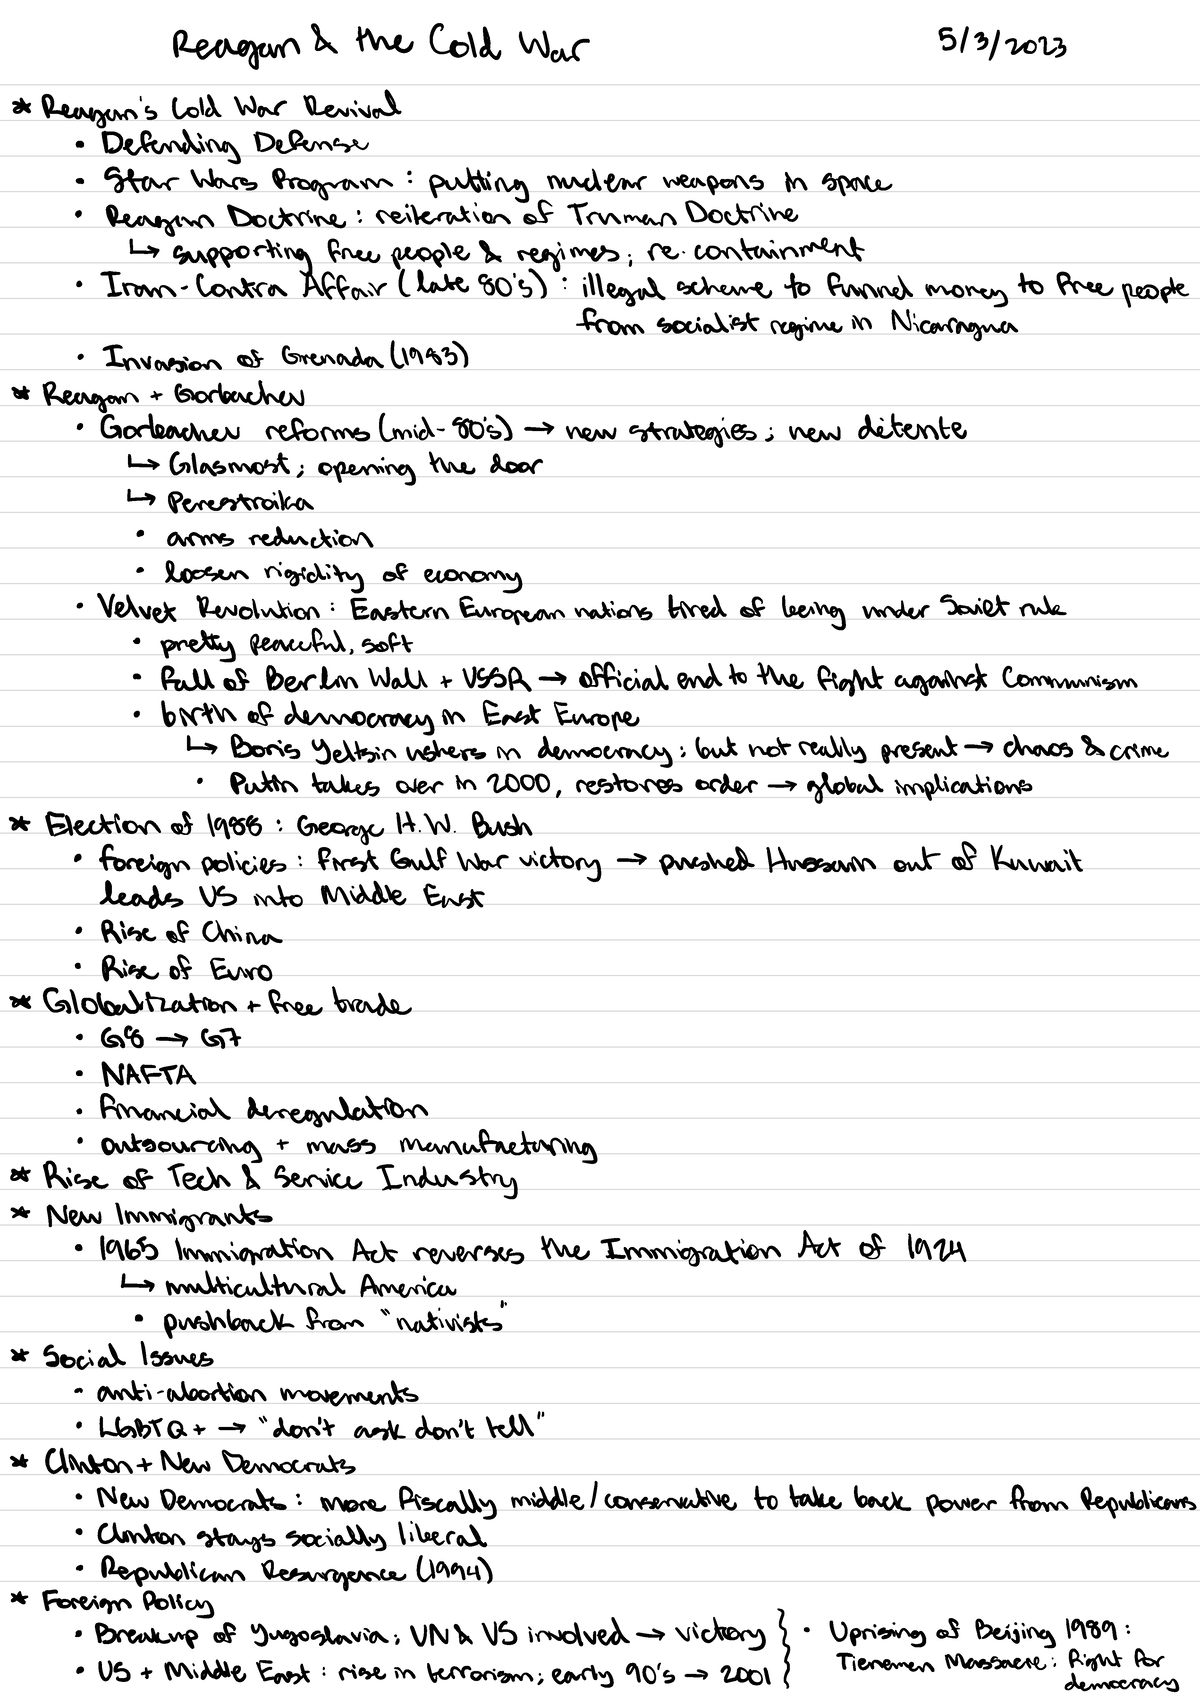 Reagan & the Cold War 5/3/2023
* Reagan's Cold War Revival
• Defending Defense
• Star Wars Program : putting nuclear weapons in space
• Reagan Doctrine : reiteration of Truman Doctrine
↳ supporting free people & regimes; re-containment
• Iran-Contra Affair (late 80's) : illegal scheme to funnel money to free people
from socialist regime in Nicaragua
• Invasion of Grenada (1983)
* Reagan + Gorbachev
• Gorbachev reforms (mid-80's) → new strategies ; new détente
↳ Glasnost ; opening the door
↳ Perestroika
• arms reduction
• loosen rigidity of economy
• Velvet Revolution : Eastern European nations tired of being under Soviet rule
• pretty peaceful, soft
• Fall of Berlin Wall + USSR → official end to the fight against Communism
• birth of democracy in East Europe
↳ Boris Yeltsin ushers in democracy ; but not really present → chaos & crime
• Putin takes over in 2000, restores order → global implications
* Election of 1988 : George H.W. Bush
• foreign policies : first Gulf War victory → pushed Hussain out of Kuwait
leads US into Middle East
• Rise of China
• Rise of Euro
* Globalization + free trade
• G8 → G7
• NAFTA
• financial deregulation
• outsourcing + mass manufacturing
* Rise of Tech & Service Industry
* New Immigrants
• 1965 Immigration Act reverses the Immigration Act of 1924
↳ multicultural America
• pushback from "nativists"
* Social Issues
• anti-abortion movements
• LGBTQ+ → "don't ask don't tell"
* Clinton + New Democrats
• New Democrats : more fiscally middle/conservative to take back power from Republicans
• Clinton stays socially liberal
• Republican Resurgence (1994)
* Foreign Policy
• Breakup of Yugoslavia; UN & US involved → victory
• US + Middle East : rise in terrorism; early 90's → 2001
• Uprising of Beijing 1989 :
Tienemen Massacre : Right for
democracy